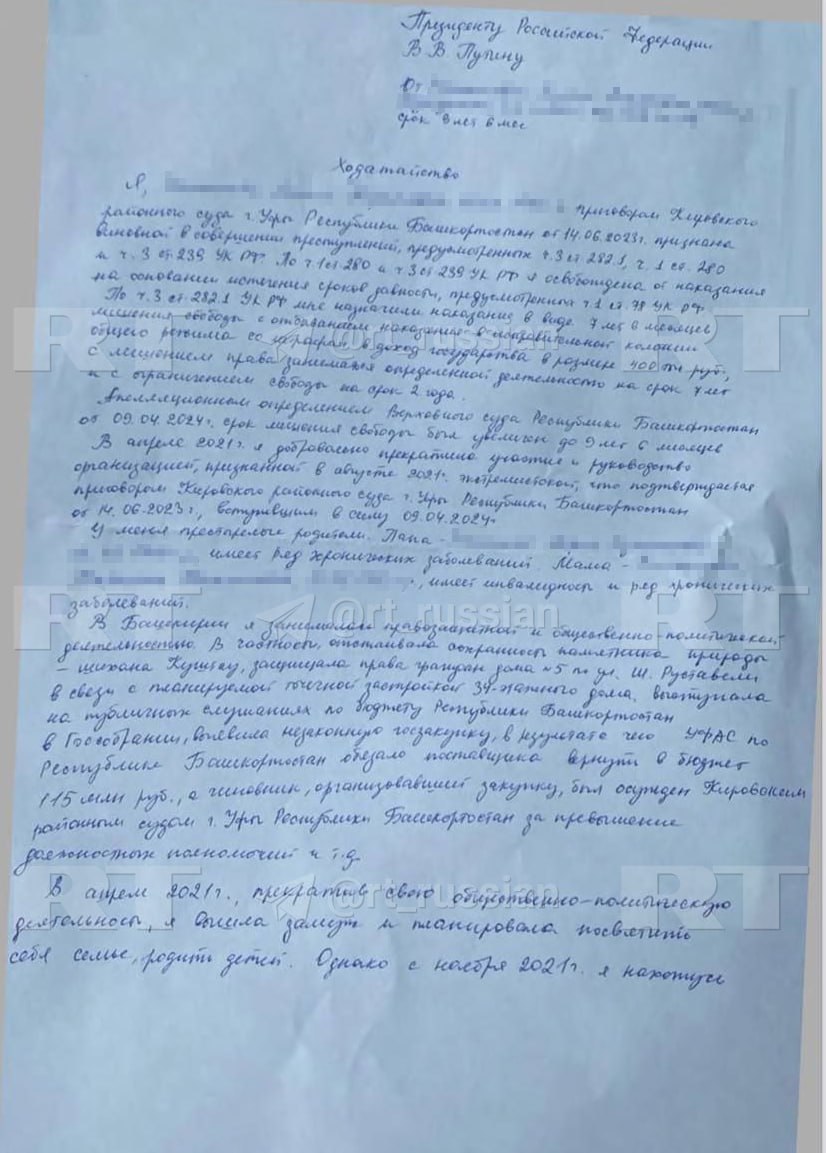 Президенту Российской Федерации
В. В. Путину
От
срок 9 лет 6 мес
Ходатайство
Я, приговором Кировского
районного суда г. Уфы Республики Башкортостан от 14.06.2023г. признана
виновной в совершении преступлений, предусмотренных ч.3 ст 282.1, ч. 1 ст. 280
и ч. 3 ст 239 УК РФ. По ч.1 ст 280 и ч 3 ст 239 УК РФ я освобождена от наказания
на основании истечения сроков давности, предусмотренных ч 1 ст. 78 УК РФ.
По ч. 3 ст. 282.1 УК РФ мне назначили наказание в виде 7 лет 6 месяцев
лишения свободы с отбыванием наказания в исправительной колонии
общего режима со штрафом в доход государства в размере 400 тыс руб.,
с лишением права заниматься определенной деятельностью на срок 7 лет
и с ограничением свободы на срок 2 года.
Апелляционным определением Верховного суда Республики Башкортостан
от 09.04.2024г. срок лишения свободы был увеличен до 9 лет 6 месяцев
В апреле 2021г. я добровольно прекратила участие и руководство
организацией, признанной в августе 2021г. экстремистской, что подтверждается
приговором Кировского районного суда г. Уфы Республики Башкортостан
от 14.06.2023г., вступившим в силу 09.04.2024г
У меня престарелые родители. Папа -
имеет ряд хронических заболеваний. Мама -
, имеет инвалидность и ряд хронических
заболеваний.
В Башкирии я занималась правозащитной и общественно-политической
деятельностью. В частности, отстаивала сохранность памятника природы
- шихана Куштау, защищала права граждан дома №5 по ул. Ш. Руставели
в связи с планируемой точечной застройкой 34-этажного дома, выступала
на публичных слушаниях по бюджету Республики Башкортостан
в Госсобрании, выявила незаконную госзакупку, в результате чего УФАС по
Республике Башкортостан обязало поставщика вернуть в бюджет
115 млн руб., а чиновник, организовавший закупку, был осужден Кировским
районным судом г. Уфы Республики Башкортостан за превышение
должностных полномочий и т.д.
В апреле 2021г., прекратив свою общественно-политическую
деятельность, я вышла замуж и планировала посвятить
себя семье, родить детей. Однако с ноября 2021г. я нахожусь
RT @rt_russian RT
RT @rt_russian RT
RT @rt_russian RT